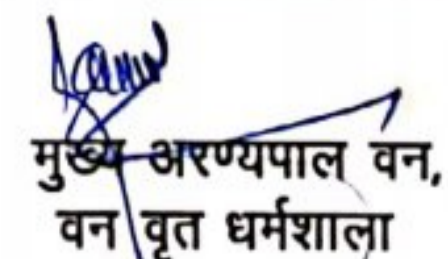 मुख्य अरण्यपाल वन,
वन वृत धर्मशाला